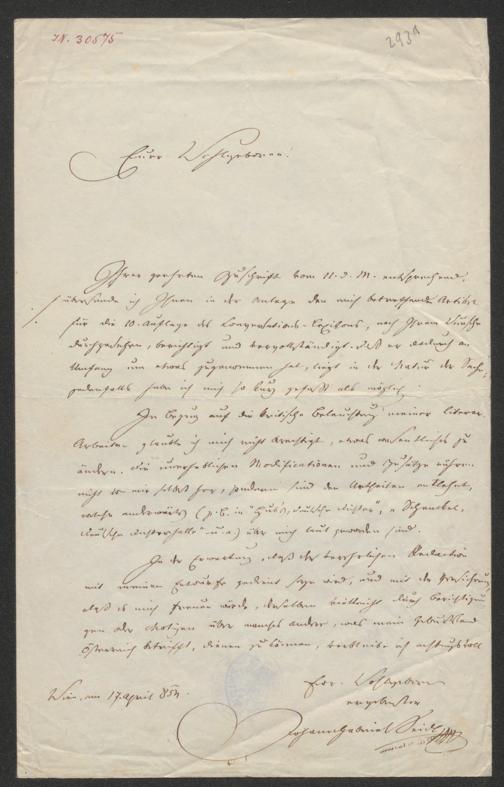 IN. 30575
2931
Eurer Wohlgeboren!
Ihrer geehrten Zuschrift vom 11. d. M. entsprechend,
übersende ich Ihnen in der Anlage den mich betreffenden Artikel
für die 10. Auflage des Conversations-Lexikons, nach Ihrem Wunsche
durchgesehen, berichtigt und vervollständigt. Daß er dadurch an
Umfang um etwas zugenommen hat, liegt in der Natur der Sache;
jedenfalls habe ich mich so kurz gefaßt als möglich.
In Bezug auf die kritische Beleuchtung meiner literar.
Arbeiten glaubte ich mich nicht berechtigt, etwas wesentliches zu
ändern. Die unerheblichen Modificationen und Zusätze rühren
nicht von mir selbst her, sondern sind den Urtheilen entlehnt,
welche anderwärts (z. B. in deutsche Dichter", u. Schenckel,
deutsche Dichterhalle" u. a.) über mich laut geworden sind.
In der Erwartung, daß der verehrlichen Redaction
mit meinem gedient sein wird, und mit der Versicherung
daß es mich freuen würde, derselben vielleicht durch Berichtigun
gen oder Notizen über manches andere, was mein Geburtsland
Österreich betrifft, dienen zu können, verbleibe ich achtungsvoll
Wien, am 17. April 854.
Eur. Wohlgeboren
ergebenster
Johann Gabriel Seidl